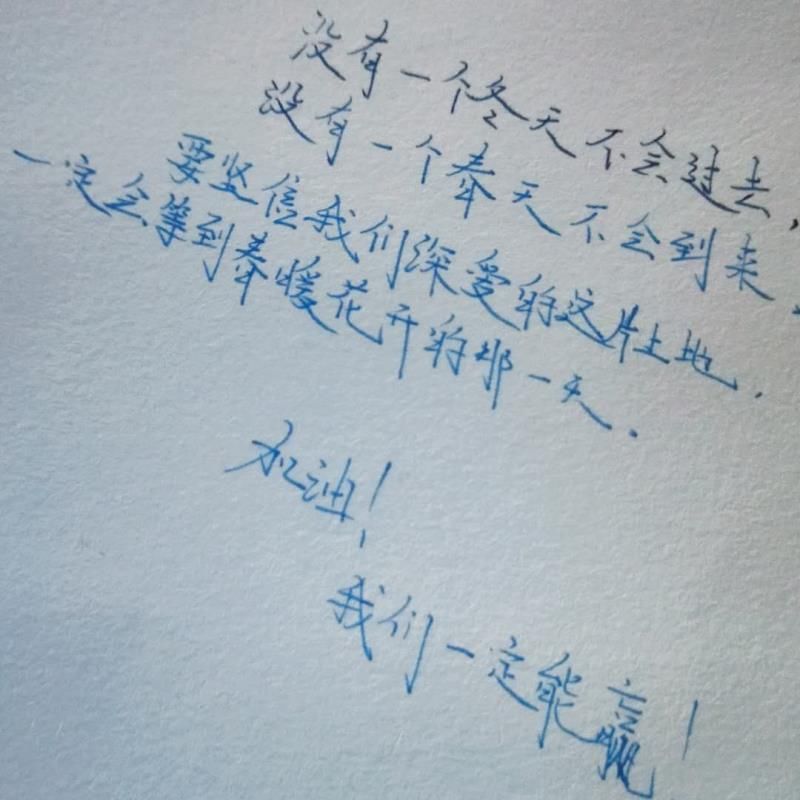 没有一个冬天不会过去，
没有一个春天不会到来。
要坚信我们深爱的这片土地.
一定会等到春暖花开的那一天.
加油！
我们一定能赢！